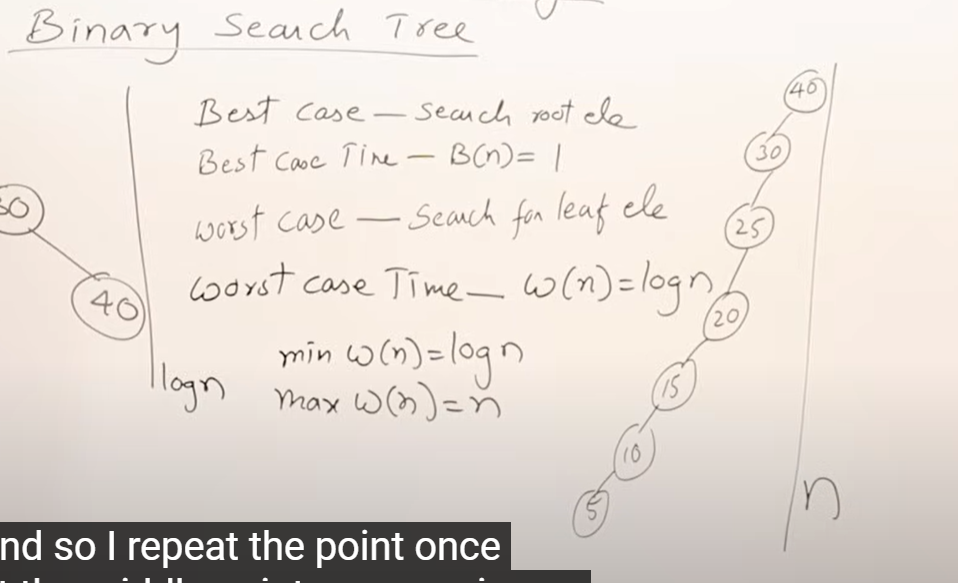 Binary Search Tree
Best Case — Search root ele
Best Case Time — B(n) = 1
worst case — Search for leaf ele
worst case Time — w(n) = log n
min w(n) = log n
max w(n) = n
40
log n
40
30
25
20
15
10
5
n
nd so I repeat the point once